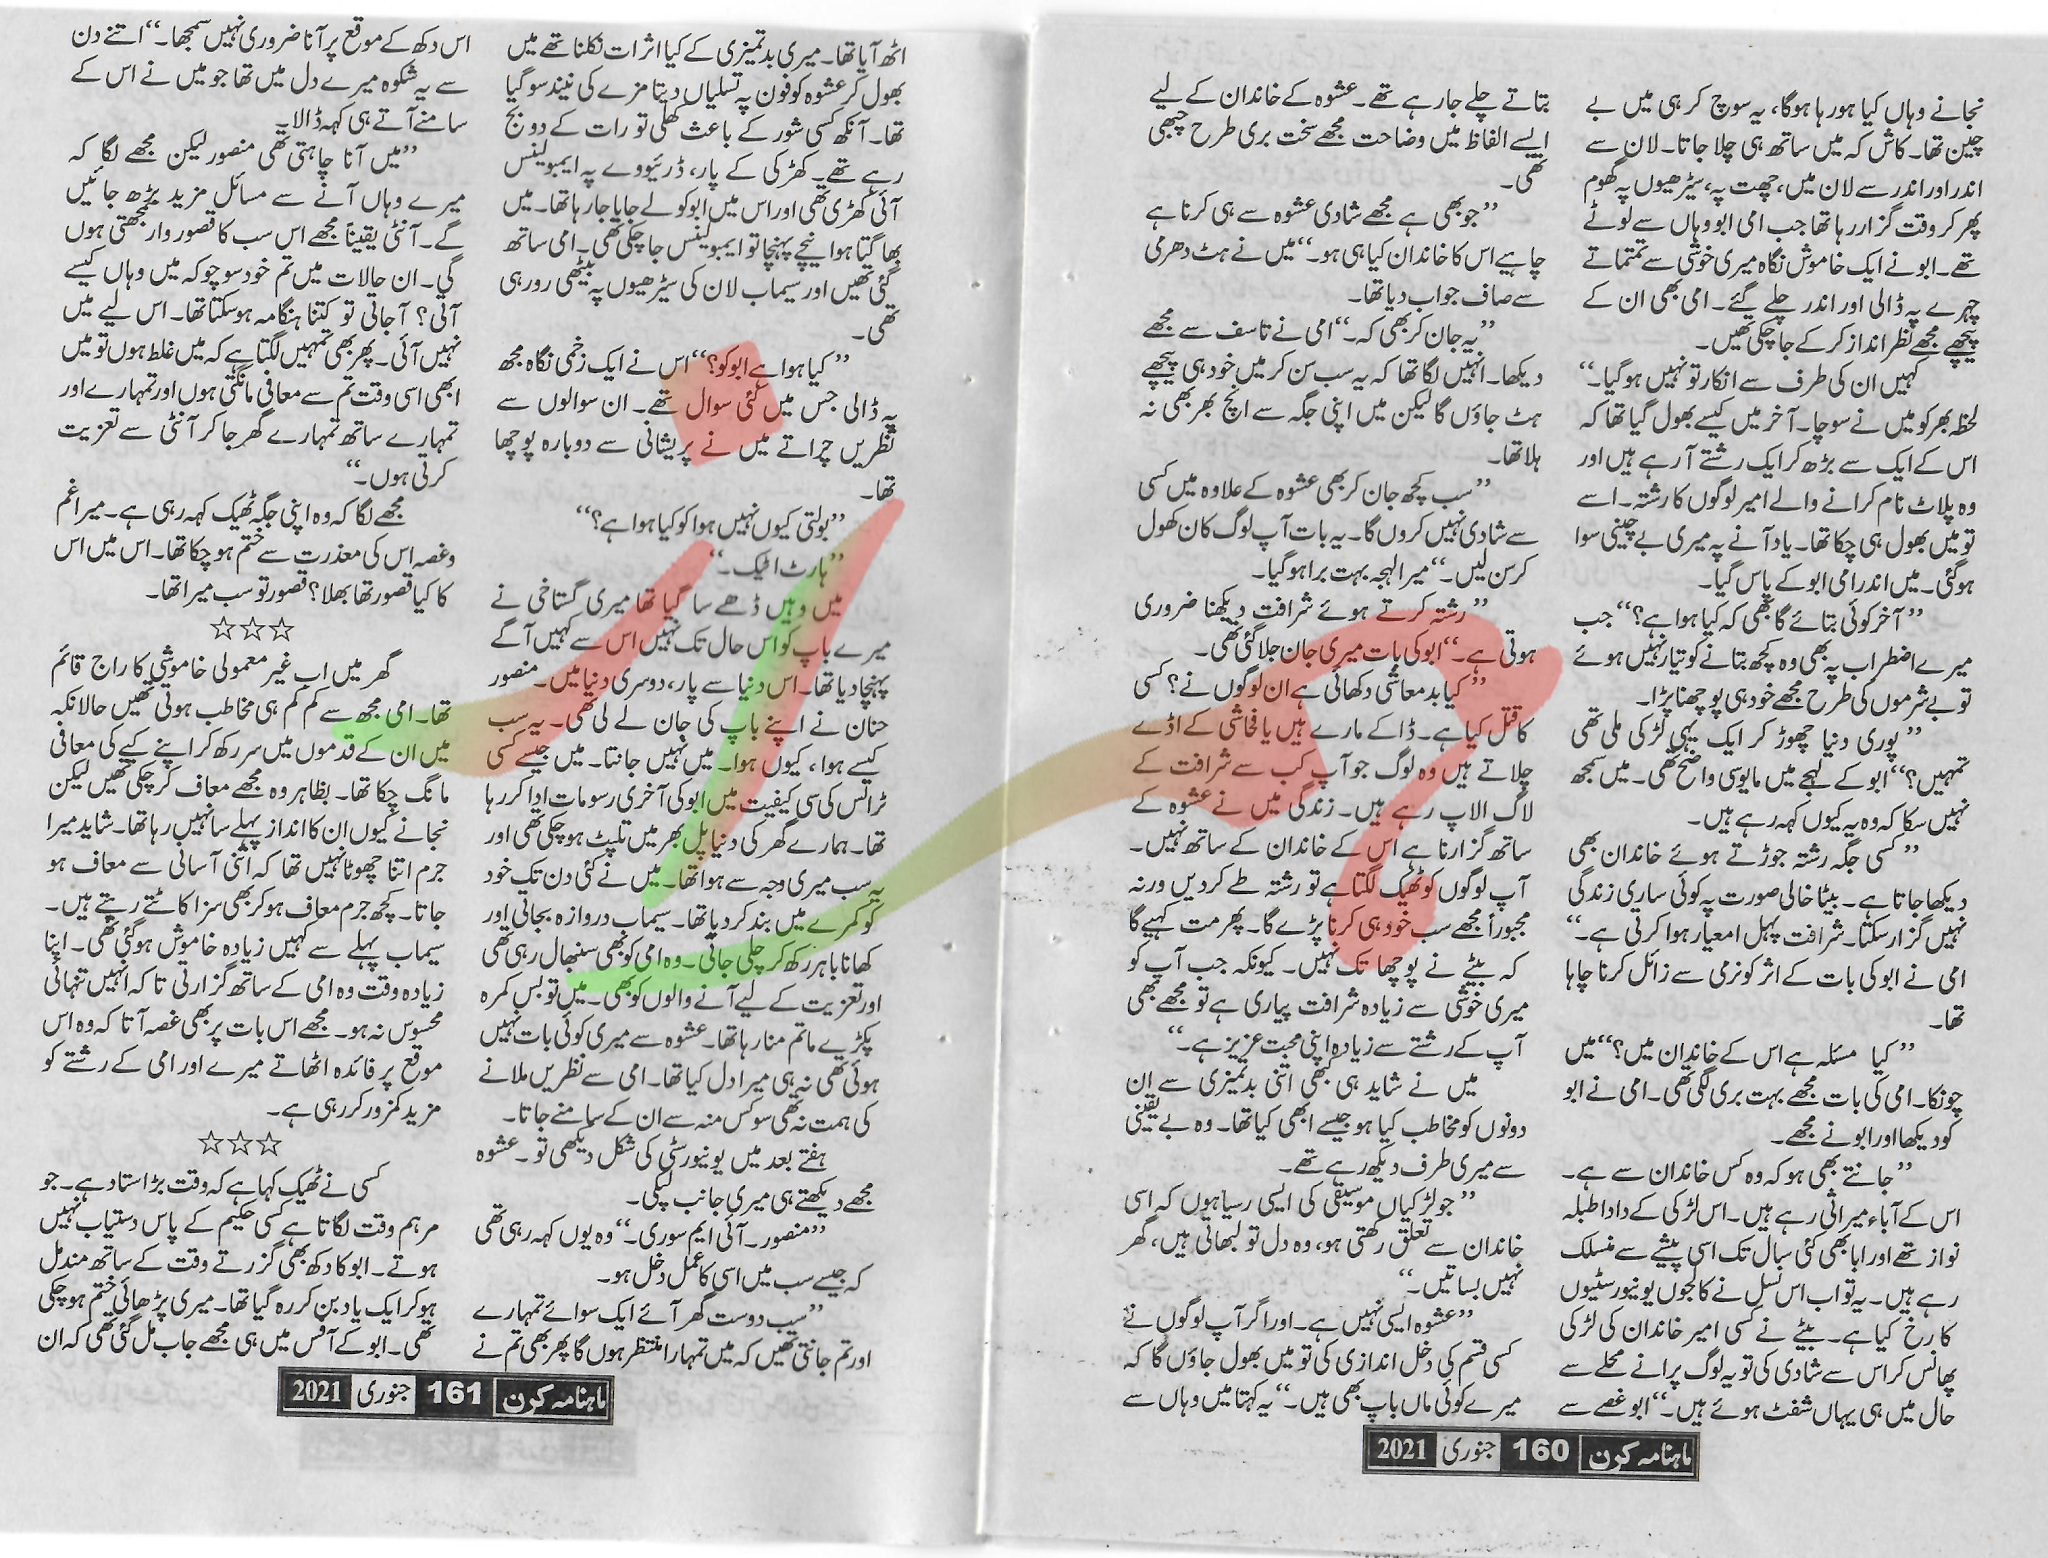 نجانے وہاں کیا ہو رہا ہوگا، یہ سوچ کر ہی میں بے
چین تھا۔ کاش کہ میں ساتھ ہی چلا جاتا۔ لان سے
اندر اور اندر سے لان میں، چھت پہ، سیڑھیوں پہ گھوم
پھر کر وقت گزار رہا تھا جب امی ابو وہاں سے لوٹے
تھے۔ ابو نے ایک خاموش نگاہ میری خوشی سے تمتماتے
چہرے پہ ڈالی اور اندر چلے گئے۔ امی بھی ان کے
پیچھے مجھے نظر انداز کر کے جا چکی تھیں۔
کہیں ان کی طرف سے انکار تو نہیں ہوگیا۔‘‘
لحظہ بھر کو میں نے سوچا۔ آخر میں کیسے بھول گیا تھا کہ
اس کے ایک سے بڑھ کر ایک رشتے آ رہے ہیں اور
وہ پلاٹ نام کرانے والے امیر لوگوں کا رشتہ۔ اسے
تو میں بھول ہی چکا تھا۔ یاد آنے پہ میری بے چینی سوا
ہوگئی۔ میں اندر امی ابو کے پاس گیا۔
’’آخر کوئی بتائے گا بھی کہ کیا ہوا ہے؟‘‘ جب
میرے اضطراب پہ بھی وہ کچھ بتانے کو تیار نہیں ہوئے
تو بے شرموں کی طرح مجھے خود ہی پوچھنا پڑا۔
’’پوری دنیا چھوڑ کر ایک یہی لڑکی ملی تھی
تمہیں؟‘‘ ابو کے لہجے میں مایوسی واضح تھی۔ میں سمجھ
نہیں سکا کہ وہ یہ کیوں کہہ رہے ہیں۔
’’کسی جگہ رشتہ جوڑتے ہوئے خاندان بھی
دیکھا جاتا ہے۔ بیٹا خالی صورت پہ کوئی ساری زندگی
نہیں گزار سکتا۔ شرافت پہلا معیار ہوا کرتی ہے۔‘‘
امی نے ابو کی بات کے اثر کو نرمی سے زائل کرنا چاہا
تھا۔
’’کیا مسئلہ ہے اس کے خاندان میں؟‘‘ میں
چونکا۔ امی کی بات مجھے بہت بری لگی تھی۔ امی نے ابو
کو دیکھا اور ابو نے مجھے۔
’’جانتے بھی ہو کہ وہ کس خاندان سے ہے۔
اس کے آباء میراثی رہے ہیں۔ اس لڑکی کے دادا طبلہ
نواز تھے اور ابا بھی کئی سال تک اسی پیشے سے منسلک
رہے ہیں۔ یہ تو اب اس نسل نے کالجوں یونیورسٹیوں
کا رخ کیا ہے۔ بیٹے نے کسی امیر خاندان کی لڑکی
پھانس کر اس سے شادی کی تو یہ لوگ پرانے محلے سے
حال میں ہی یہاں شفٹ ہوئے ہیں۔‘‘ ابو غصے سے
بتاتے چلے جا رہے تھے۔ عشوہ کے خاندان کے لیے
ایسے الفاظ میں وضاحت مجھے سخت بری طرح چبھی
تھی۔
’’جو بھی ہے مجھے شادی عشوہ سے ہی کرنا ہے
چاہے اس کا خاندان کیا ہی ہو۔‘‘ میں نے ہٹ دھرمی
سے صاف جواب دیا تھا۔
’’یہ جان کر بھی کہ۔‘‘ امی نے تاسف سے مجھے
دیکھا۔ انہیں لگا تھا کہ یہ سب سن کر میں خود ہی پیچھے
ہٹ جاؤں گا لیکن میں اپنی جگہ سے انچ بھر بھی نہ
ہلا تھا۔
’’سب کچھ جان کر بھی عشوہ کے علاوہ میں کسی
سے شادی نہیں کروں گا۔ یہ بات آپ لوگ کان کھول
کر سن لیں۔‘‘ میرا لہجہ بہت برا ہوگیا۔
’’رشتہ کرتے ہوئے شرافت دیکھنا ضروری
ہوتی ہے۔‘‘ ابو کی بات میری جان جلا گئی تھی۔
’’کیا بدمعاشی دکھائی ہے ان لوگوں نے؟ کسی
کا قتل کیا ہے۔ ڈاکے مارے ہیں یا فحاشی کے اڈے
چلاتے ہیں وہ لوگ جو آپ کب سے شرافت کے
لاگ الاپ رہے ہیں۔ زندگی میں نے عشوہ کے
ساتھ گزارنا ہے اس کے خاندان کے ساتھ نہیں۔
آپ لوگوں کو ٹھیک لگتا ہے تو رشتہ طے کر دیں ورنہ
مجبوراً مجھے سب خود ہی کرنا پڑے گا۔ پھر مت کہیے گا
کہ بیٹے نے پوچھا تک نہیں۔ کیونکہ جب آپ کو
میری خوشی سے زیادہ شرافت پیاری ہے تو مجھے بھی
آپ کے رشتے سے زیادہ اپنی محبت عزیز ہے۔‘‘
میں نے شاید ہی کبھی اتنی بدتمیزی سے ان
دونوں کو مخاطب کیا ہو جیسے ابھی کیا تھا۔ وہ بے یقینی
سے میری طرف دیکھ رہے تھے۔
’’جو لڑکیاں موسیقی کی ایسی رسیا ہوں کہ اسی
خاندان سے تعلق رکھتی ہو، وہ دل تو لبھاتی ہیں، گھر
نہیں بساتیں۔‘‘
’’عشوہ ایسی نہیں ہے۔ اور اگر آپ لوگوں نے
کسی قسم کی دخل اندازی کی تو میں بھول جاؤں گا کہ
میرے کوئی ماں باپ بھی ہیں۔‘‘ یہ کہتا میں وہاں سے
ماہنامہ کرن 160 جنوری 2021
اٹھ آیا تھا۔ میری بدتمیزی کے کیا اثرات نکلنا تھے میں
بھول کر عشوہ کو فون پہ تسلیاں دیتا مزے کی نیند سو گیا
تھا۔ آنکھ کسی شور کے باعث کھلی تو رات کے دو بج
رہے تھے۔ کھڑکی کے پار، ڈرئیووے پہ ایمبولینس
آئی کھڑی تھی اور اس میں ابو کو لے جایا جا رہا تھا۔ میں
بھاگتا ہوا نیچے پہنچا تو ایمبولینس جا چکی تھی۔ امی ساتھ
گئی تھیں اور سیماب لان کی سیڑھیوں پہ بیٹھی رو رہی
تھی۔
’’کیا ہوا ہے ابو کو؟‘‘ اس نے ایک زخمی نگاہ مجھ
پہ ڈالی جس میں کئی سوال تھے۔ ان سوالوں سے
نظریں چراتے میں نے پریشانی سے دوبارہ پوچھا
تھا۔
’’بولتی کیوں نہیں ہوا کو کیا ہوا ہے؟‘‘
’’ہارٹ اٹیک۔‘‘
میں وہیں ڈھے سا گیا تھا میری گستاخی نے
میرے باپ کو اس حال تک نہیں اس سے کہیں آگے
پہنچا دیا تھا۔ اس دنیا سے پار، دوسری دنیا میں۔ منصور
حنان نے اپنے باپ کی جان لے لی تھی۔ یہ سب
کیسے ہوا، کیوں ہوا۔ میں نہیں جانتا۔ میں جیسے کسی
ٹرانس کی سی کیفیت میں ابو کی آخری رسومات ادا کر رہا
تھا۔ ہمارے گھر کی دنیا پل بھر میں تلپٹ ہو چکی تھی اور
یہ سب میری وجہ سے ہوا تھا۔ میں نے کئی دن تک خود
کو کمرے میں بند کر دیا تھا۔ سیماب دروازہ بجاتی اور
کھانا باہر رکھ کر چلی جاتی۔ وہ امی کو بھی سنبھال رہی تھی
اور تعزیت کے لیے آنے والوں کو بھی۔ میں تو بس کمرہ
پکڑے ماتم منا رہا تھا۔ عشوہ سے میری کوئی بات نہیں
ہوئی تھی نہ ہی میرا دل کیا تھا۔ امی سے نظریں ملانے
کی ہمت نہ تھی سو کس منہ سے ان کے سامنے جاتا۔
ہفتے بعد میں یونیورسٹی کی شکل دیکھی تو۔ عشوہ
مجھے دیکھتے ہی میری جانب لپکی۔
’’منصور۔ آئی ایم سوری۔‘‘ وہ یوں کہہ رہی تھی
کہ جیسے سب میں اسی کا عمل دخل ہو۔
’’سب دوست گھر آئے ایک سوائے تمہارے
اور تم جانتی تھیں کہ میں تمہارا منتظر ہوں گا پھر بھی تم نے
اس دکھ کے موقع پر آنا ضروری نہیں سمجھا۔‘‘ اتنے دن
سے یہ شکوہ میرے دل میں تھا جو میں نے اس کے
سامنے آتے ہی کہہ ڈالا۔
’’میں آنا چاہتی تھی منصور لیکن مجھے لگا کہ
میرے وہاں آنے سے مسائل مزید بڑھ جائیں
گے۔ آنٹی یقیناً مجھے اس سب کا قصوروار سمجھتی ہوں
گی۔ ان حالات میں تم خود سوچو کہ میں وہاں کیسے
آتی؟ آ جاتی تو کتنا ہنگامہ ہو سکتا تھا۔ اس لیے میں
نہیں آئی۔ پھر بھی تمہیں لگتا ہے کہ میں غلط ہوں تو میں
ابھی اسی وقت تم سے معافی مانگتی ہوں اور تمہارے اور
تمہارے ساتھ تمہارے گھر جا کر آنٹی سے تعزیت
کرتی ہوں۔‘‘
مجھے لگا کہ وہ اپنی جگہ ٹھیک کہہ رہی ہے۔ میرا غم
و غصہ اس کی معذرت سے ختم ہو چکا تھا۔ اس میں اس
کا کیا قصور تھا بھلا؟ قصور تو سب میرا تھا۔
☆☆☆
گھر میں اب غیر معمولی خاموشی کا راج قائم
تھا۔ امی مجھ سے کم کم ہی مخاطب ہوتی تھیں حالانکہ
میں ان کے قدموں میں سر رکھ کر اپنے کیے کی معافی
مانگ چکا تھا۔ بظاہر وہ مجھے معاف کر چکی تھیں لیکن
نجانے کیوں ان کا انداز پہلے سا نہیں رہا تھا۔ شاید میرا
جرم اتنا چھوٹا نہیں تھا کہ اتنی آسانی سے معاف ہو
جاتا۔ کچھ جرم معاف ہو کر بھی سزا کاٹتے رہتے ہیں۔
سیماب پہلے سے کہیں زیادہ خاموش ہوگئی تھی۔ اپنا
زیادہ وقت وہ امی کے ساتھ گزارتی تاکہ انہیں تنہائی
محسوس نہ ہو۔ مجھے اس بات پر بھی غصہ آتا کہ وہ اس
موقع پر فائدہ اٹھاتے میرے اور امی کے رشتے کو
مزید کمزور کر رہی ہے۔
☆☆☆
کسی نے ٹھیک کہا ہے کہ وقت بڑا استاد ہے۔ جو
مرہم وقت لگاتا ہے کسی حکیم کے پاس دستیاب نہیں
ہوتے۔ ابو کا دکھ بھی گزرتے وقت کے ساتھ مندمل
ہو کر ایک یاد بن کر رہ گیا تھا۔ میری پڑھائی ختم ہو چکی
تھی۔ ابو کے آفس میں ہی مجھے جاب مل گئی تھی کہ ان
ماہنامہ کرن 161 جنوری 2021